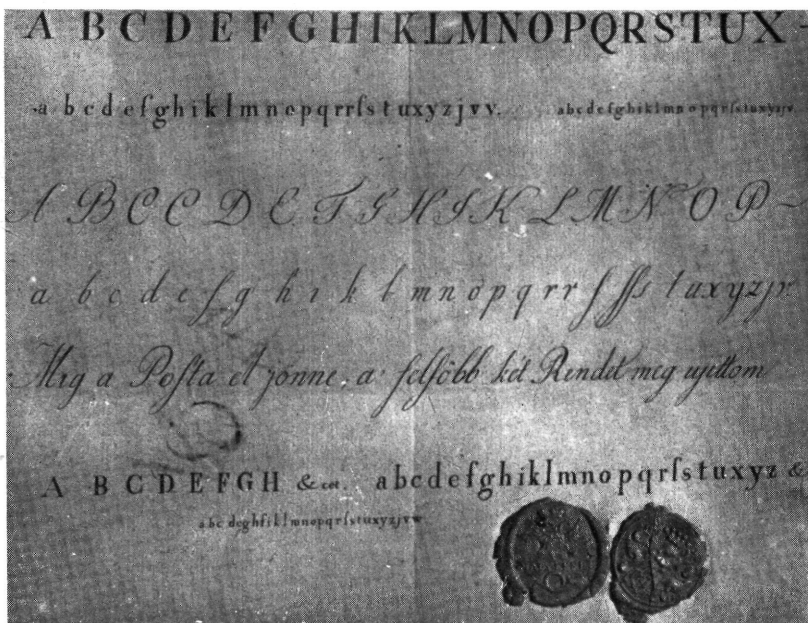 A B C D E F G H I K L M N O P Q R S T U X
a b c d e f g h i k l m n o p q r r ſ s t u x y z j v v. a b c d e f g h i k l m n o p q r ſ s t u x y z j v
A B C C D E F G H I K L M N O P
a b c d e f g h i k l m n o p q r r ſ ſſ s t u x y z j v
Mig a Poſta el jönne, a' felſöbb két Rendet meg ujittom
A B C D E F G H &cet. a b c d e f g h i k l m n o p q r ſ s t u x y z &
a b c d e g h f i k l m n o p q r ſ s t u x y z j v w